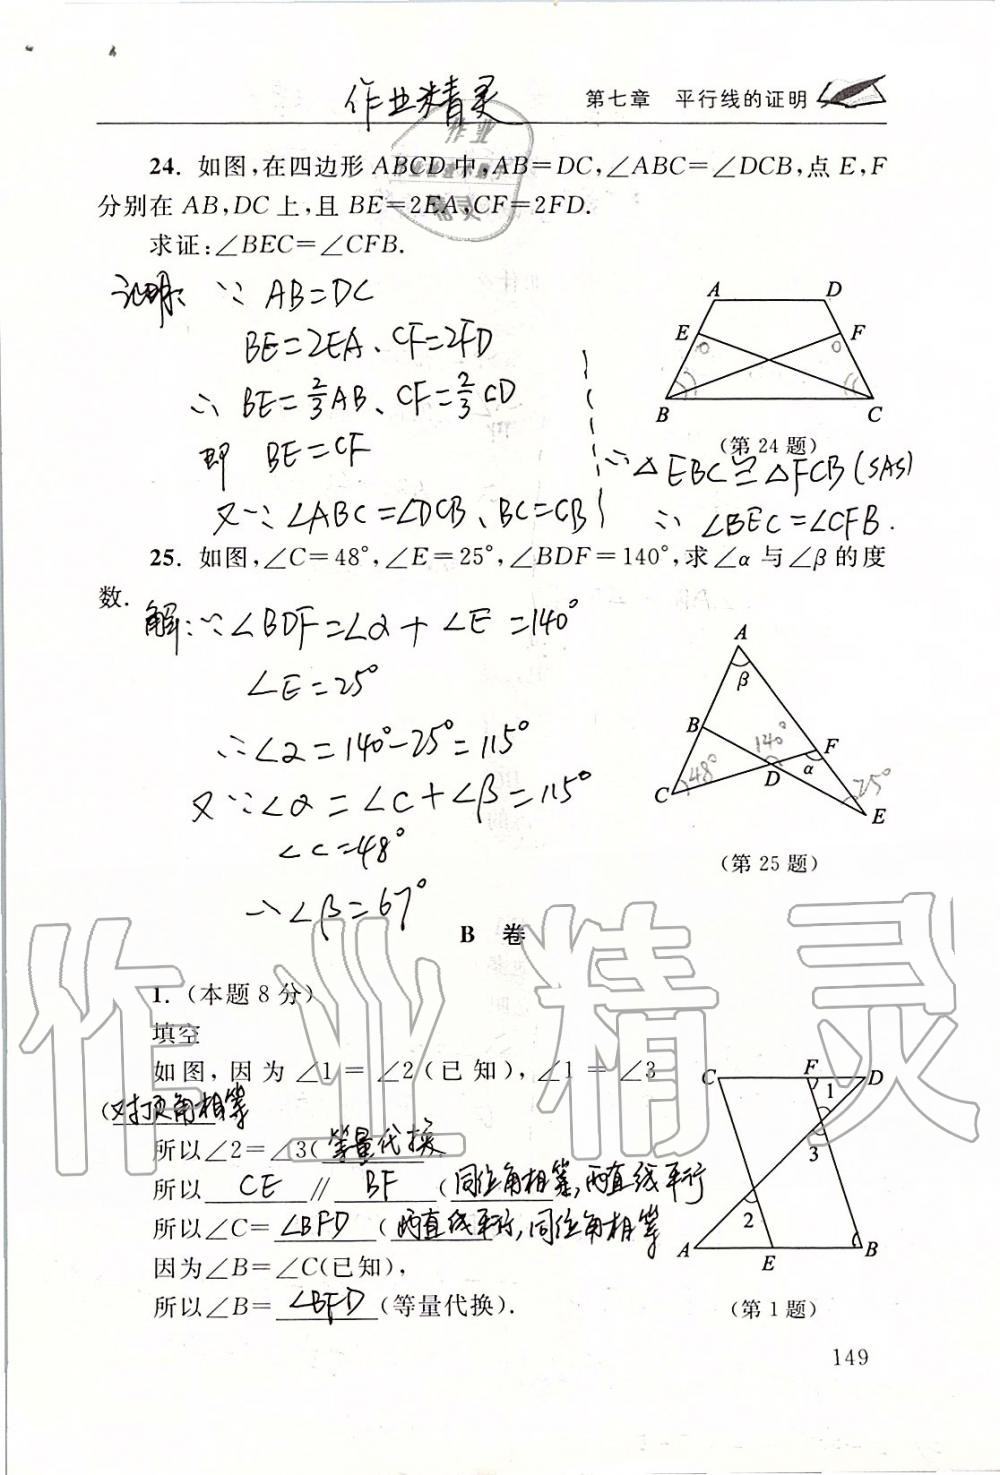 作业精灵
第七章 平行线的证明
24. 如图,在四边形 ABCD 中,AB=DC,∠ABC=∠DCB,点 E,F
分别在 AB,DC 上,且 BE=2EA,CF=2FD.
求证:∠BEC=∠CFB.
证明: ∵ AB=DC
BE=2EA、CF=2FD
∴ BE=2/3AB、CF=2/3CD
即 BE=CF
又∵∠ABC=∠DCB、BC=CB
A D
E F
B C
(第 24 题)
∴△EBC≌△FCB(SAS)
∴ ∠BEC=∠CFB.
25. 如图,∠C=48°,∠E=25°,∠BDF=140°,求∠α与∠β的度
数.
解:∵∠BDF=∠α+∠E=140°
∠E=25°
∴∠α=140°-25°=115°
又∵∠α=∠C+∠β=115°
∠C=48°
∴∠β=67°
A
β
B
140° F
C 48° D α 25°
E
(第 25 题)
B 卷
1. (本题 8 分)
填空
如图,因为∠1=∠2(已知),∠1=∠3
(对顶角相等
所以∠2=∠3(等量代换
所以 CE // BF (同位角相等,两直线平行
所以∠C=∠BFD (两直线平行,同位角相等
因为∠B=∠C(已知),
所以∠B= ∠BFD (等量代换).
C F D
1
3
2
A E B
(第 1 题)
149
作业精灵